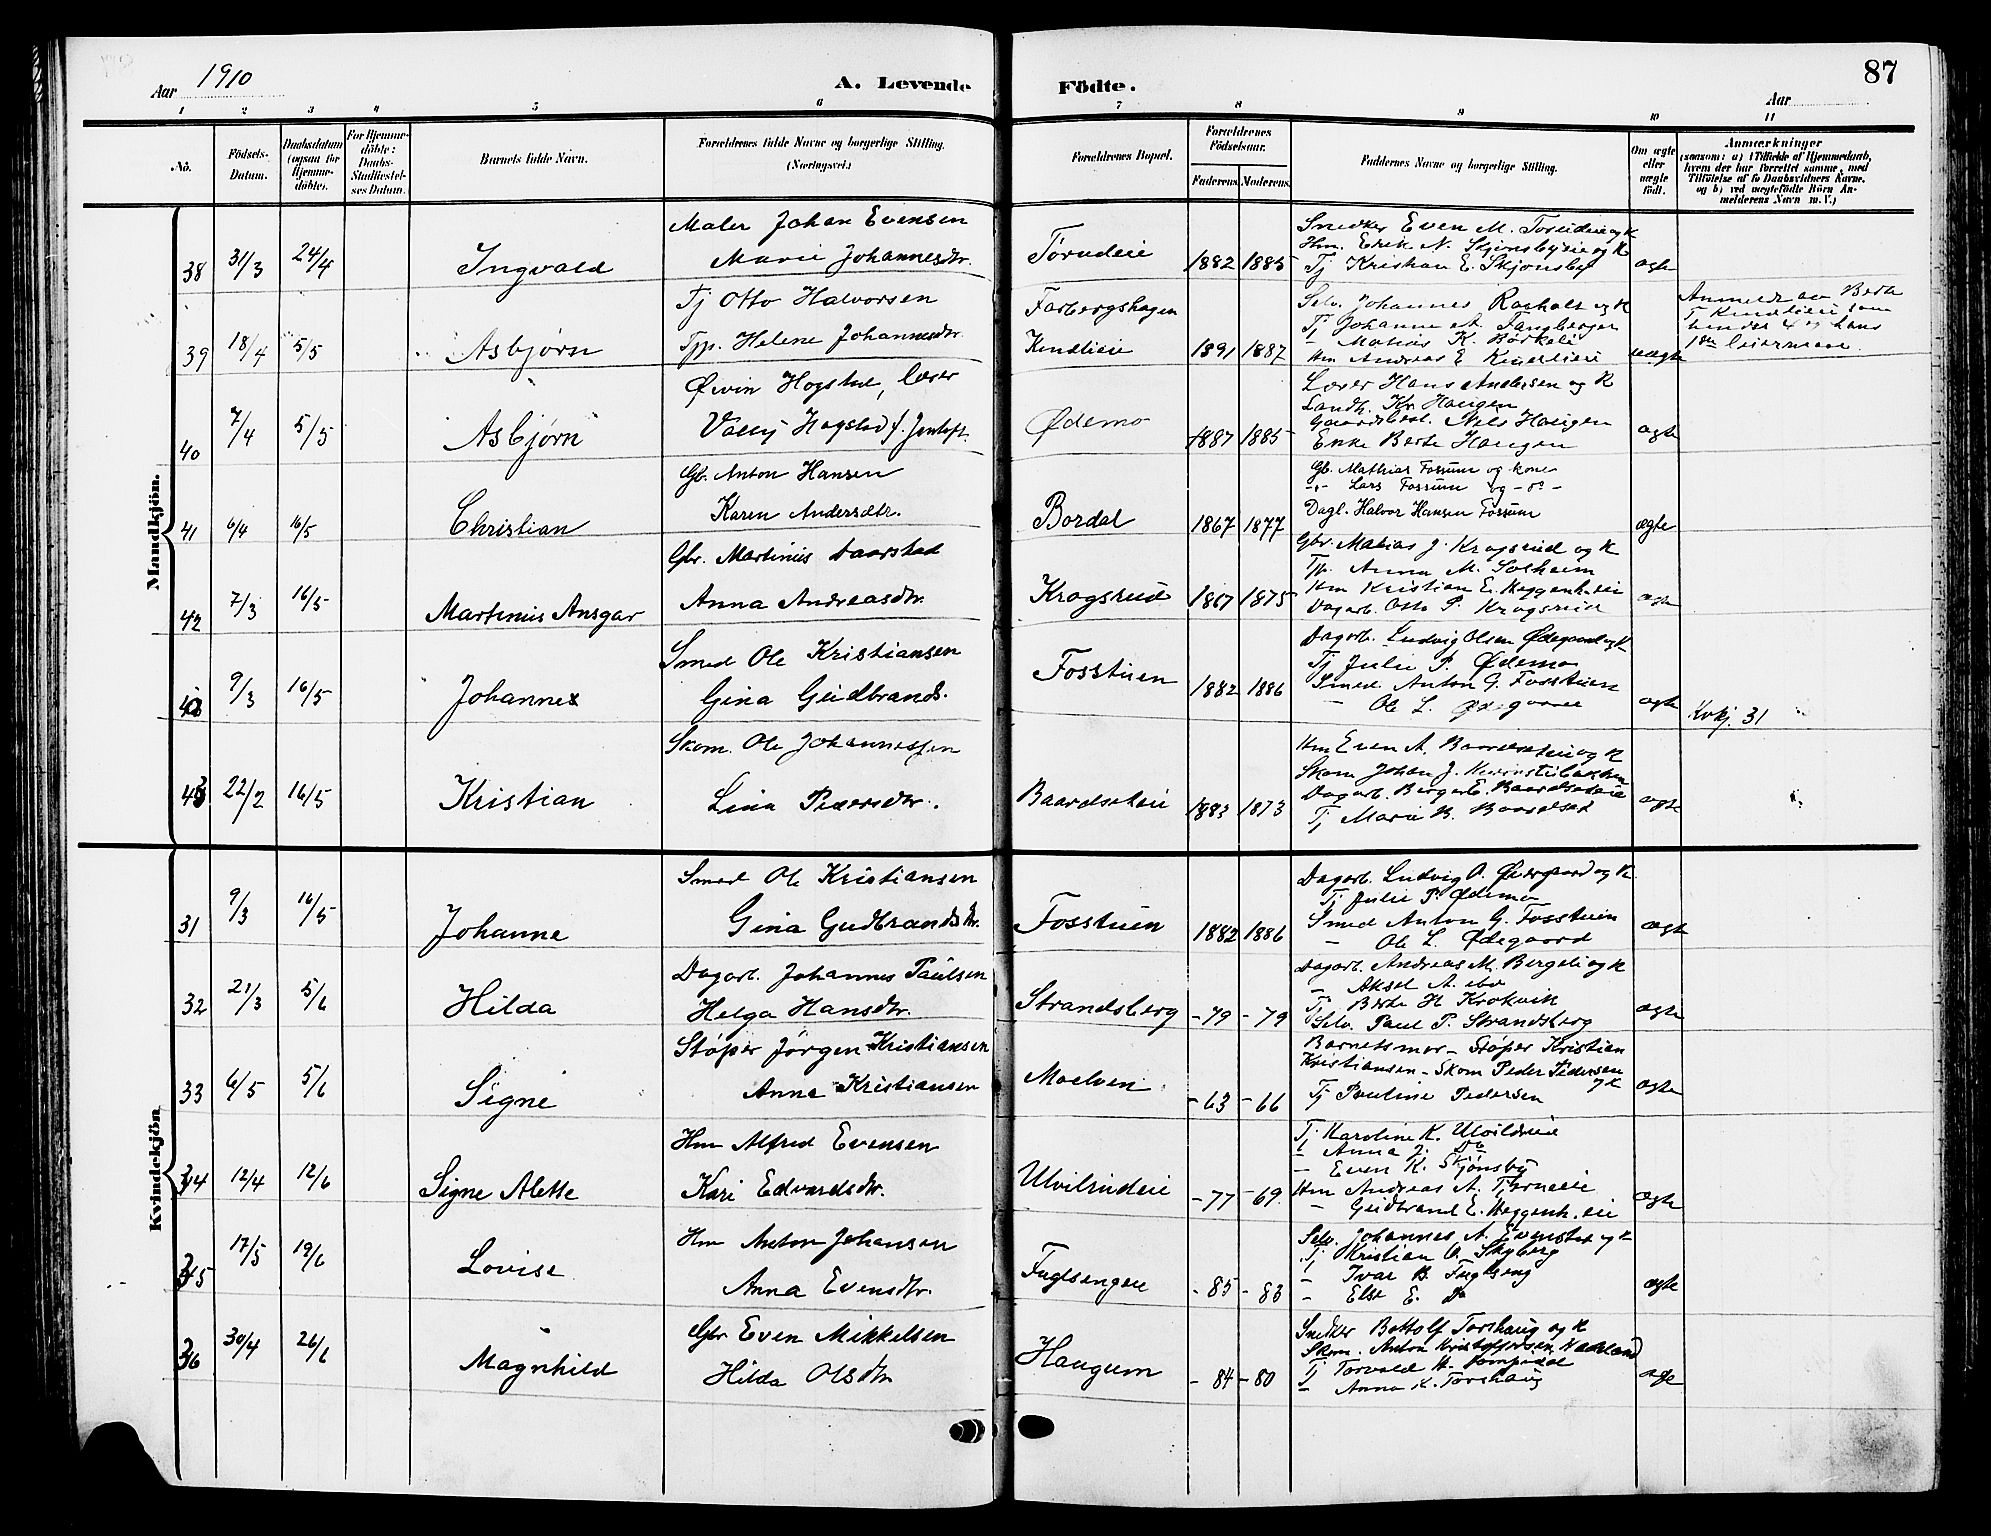 Aar 1910
A. Levende
Födte.
Aar
87
1 2 3 4 5 6 7 8 9 10 11
No.
Födsels-Datum.
Daabsdatum (ogsaa for Hjemme-döbte).
For Hjemme-döbte: Daabs-Stadfæstel-ses Datum.
Barnets fulde Navn.
Forældrenes fulde Navne og borgerlige Stilling. (Næringsvei.)
Forældrenes Bopæl.
Forældrenes Födselsaar.
Faderens. Moderens.
Faddernes Navne og borgerlige Stilling.
Om ægte eller uægte födt.
Anmærkninger
(saasom: a) i Tilfælde af Hjemmedaab,
hvem der har forrettet samme, med
Tilföielse af to Daabsvidners Navne.
og b) ved uægtefödte Börn An-
melderens Navn m.V.)
Mandkjön.
Maler Johan Evensen
Marie Johannesdtr.
38 31/3 24/4 Ingvald
1882 1885
Snedker Even M.
Hm. Erik N. Skjønsbyeie og K
Tj Kristian E. Skjønsby
ægte
Tj Otto Halvorsen
Tjp. Helene Johannesdtr
39 18/4 5/5 Asbjørn
Farbergshagen
Kindlieie
1891 1887
Selv. Johannes og K
Tj Johanne A. Fangberget
- Mathias K. Børkeli
Hm Andreas E
uægte
Anmeldt av Berte
Tj Kindlieie som
hendes 4 og hans
1ste leiermaal.
Øivin Hogstad, lærer
Valley Hogstad f. Jentoft.
40 7/4 5/5 Asbjørn
Ødemo
1887 1885
Lærer Hans Andersen og K
Landh. Kr. Haugen
Gaardsbest. Nils Haugen
Enke Berte Haugen
ægte
Gb. Anton Hansen
Karen Andersdtr.
41 6/4 16/5 Christian
Bordal
1867 1877
Gb. Mathias Fossum og kone
-"- Lars Fossum og - do -
Dagl. Halvor Hansen Fossum
ægte
Gbr. Martinius Saarstad
Anna Andreasdtr.
42 7/3 16/5 Martinius Ansgar
Krogsrud
1867 1875
Gbr. Matias J. Krogsrud og K
Tjp. Anna M. Solheim
Hm Kristian E. Heggenh.eie
Dagarb. Otto P. Krogsrud
ægte
Smed Ole Kristiansen
Gina Gudbrands.
9/3 16/5 Johannes
Fosstuen
1882 1886
Dagarb. Ludvig Olsen Ødegaard og K
Tj Julie P. Ødemo
Smed. Anton G. Fosstuen
- Ole L. Ødegaard
ægte
Kvkj. 31
Skom. Ole Johannessen
Lina Pedersdtr.
43 22/2 16/5 Kristian
Baardseteie
1883 1873
Hm Even A. Baardseteie og K
Skom Johan J.
Dagarb. Berger E. Baardseteie
Tj Marie B. Baardset
ægte
Kvindekjön
Smed Ole Kristiansen
Gina Gudbrandsdtr.
31 9/3 16/5 Johanne
Fosstuen
1882 1886
Dagarb. Ludvig O. Ødegaard og K
Tj Julie P. Ødemo
Smed Anton G. Fosstuen
- Ole L. Ødegaard
ægte
Dagarb. Johannes Paulsen
Helga Hansdtr.
32 21/3 5/6 Hilda
Strandsberg
-79 -79
Dagarb. Andreas M. Bergeli og K
- Aksel A. ibd
Tj Berte H Krokvik
Selv. Paul P. Strandsberg
ægte
Støper Jørgen Kristiansen
Anna Kristiansen
33 6/5 5/6 Signe
Moelven
-63 -66
Barnetsmor - Støper Kristian
Kristiansen - Skom Peder Pedersen
og K
Tj Pauline Pedersen
ægte
Hm Alfred Evensen
Kari Edvardsdtr.
34 12/4 12/6 Signe Alette
Ulvilrudeie
-77 -69.
Tj Karoline K.
- Anna J. Do
- Even K. Skjønsby
Hm Andreas A.
- Gudbrand E. Heggenh.eie
ægte
Hm Anton Johansen
Anna Evensdtr.
35 17/5 19/6 Lovise
Fuglsengeie
-85 -83
Selv. Johannes A. Evenstad og K
Tj Kristian O. Skyberg
- Ivar B. Fuglseng
- Else E. Do
ægte
Gbr Even Mikkelsen
Hilda Olsdtr
36 30/4 26/6 Magnhild
Haugum
-84 -80
Snedker Bottolf Torshaug og K
Skom. Anton Kristoffersen
Tj Torvald H.
- Anna K. Torshaug
ægte